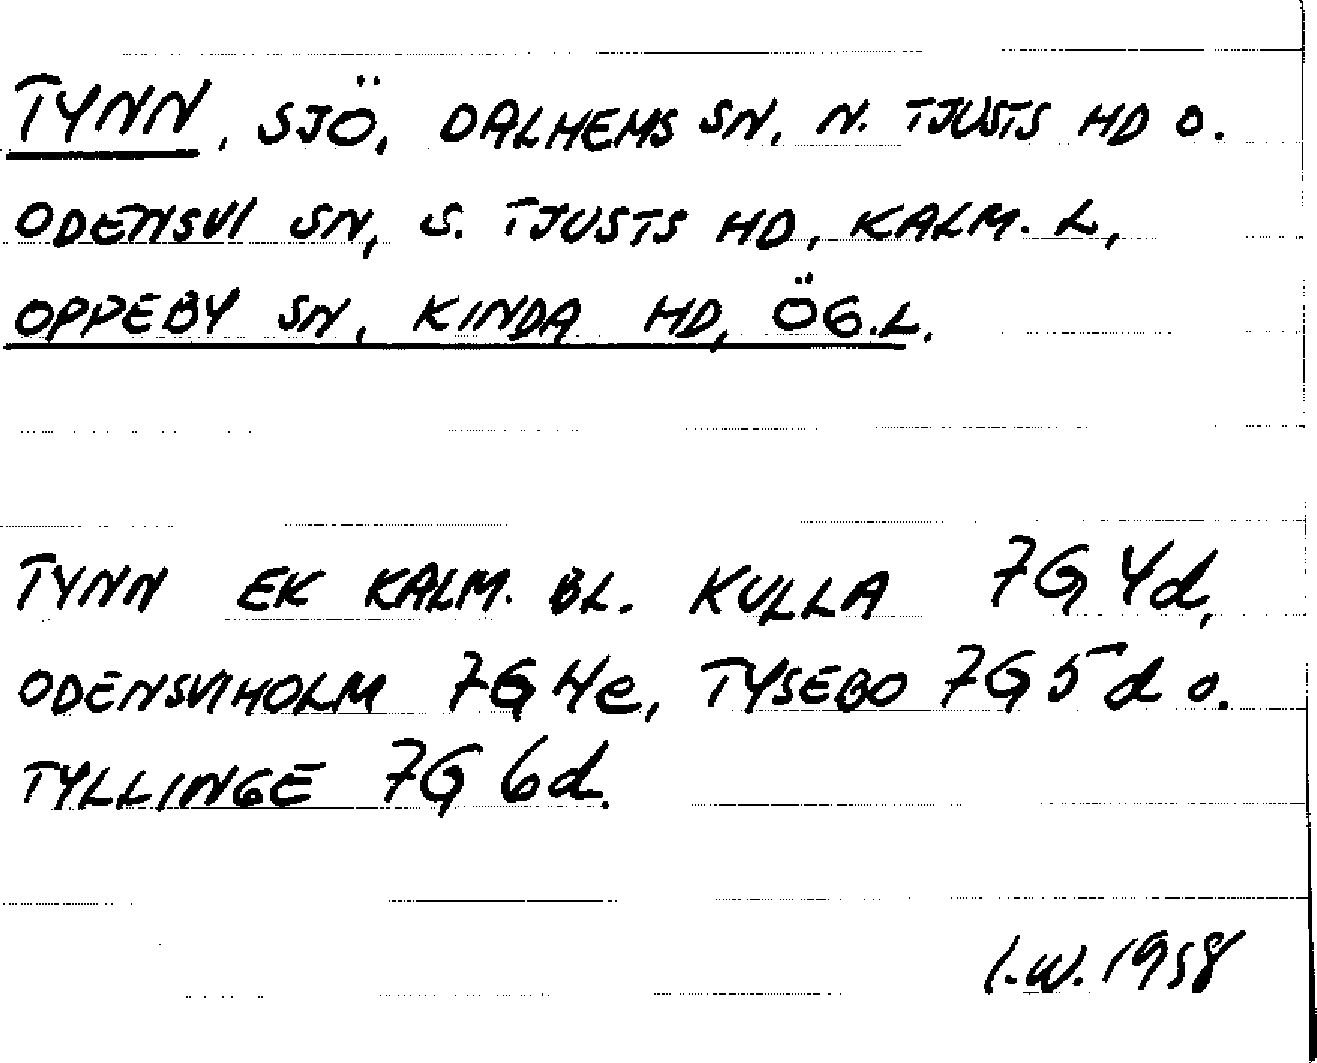 TYNN, SJÖ, DALHEMS SN, N. TJUSTS HD O.
ODENSVI SN, S. TJUSTS HD, KALM. L,
OPPEBY SN, KINDA HD, ÖG.L.
TYNN EK KALM. BL. KULLA 7G 4d,
ODENSVIHOLM 7G 4e, TYSEBO 7G 5d o.
TYLLINGE 7G 6d.
I.W. 1958